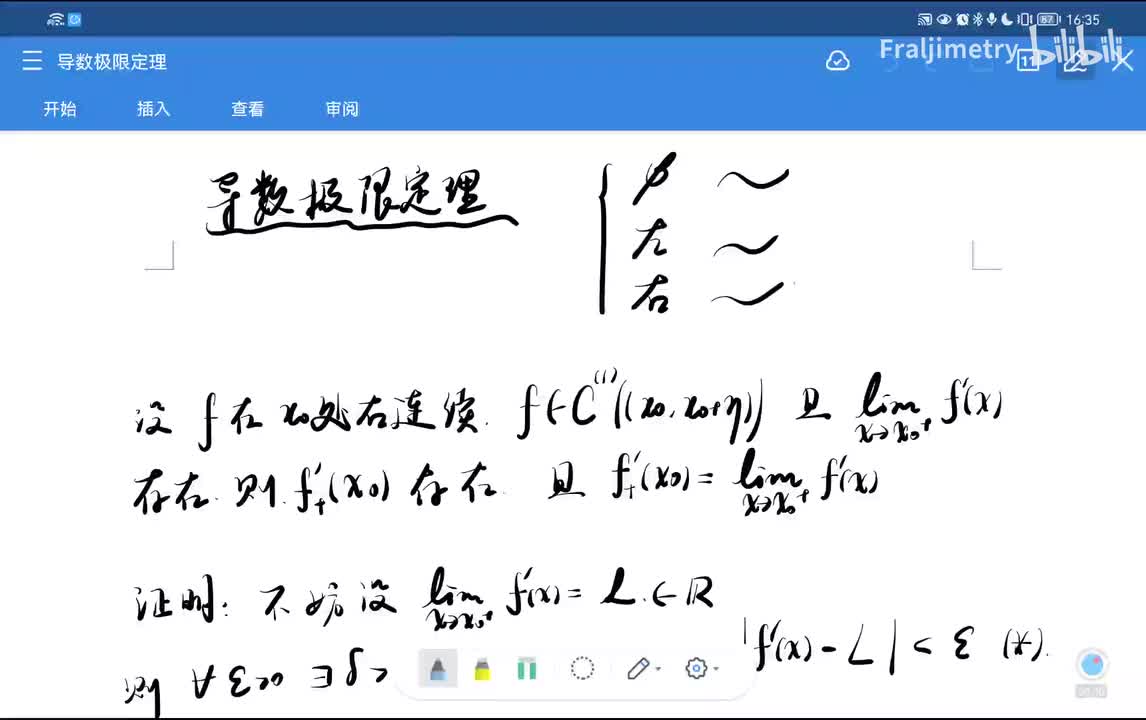 16:35
导数极限定理
Fraljimetry
bilibili
开始 插入 查看 审阅
导数极限定理
左
右
设 f 在 x₀处右连续. f∈C⁽¹⁾((x₀, x₀+η)) 且 lim x→x₀⁺ f'(x)
存在. 则 f₊'(x₀) 存在. 且 f₊'(x₀) = lim x→x₀⁺ f'(x)
证明: 不妨设 lim x→x₀⁺ f'(x) = L ∈ ℝ
则 ∀ ε>0 ∃ δ> |f'(x) - L| < ε (*).